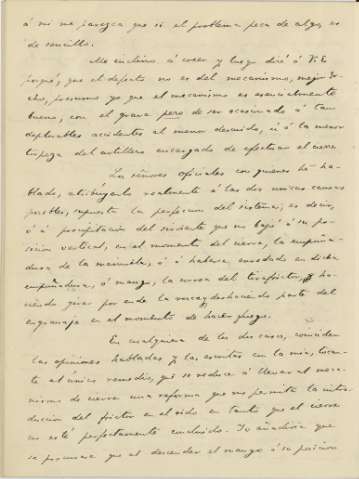 á mi me parezca que si el problema peca de algo, es
de sencillo.
Me inclino á creer y luego diré á V.E.
porqué, que el defecto no es del mecanismo, mejor di-
cho, presumo yo que el mecanismo es esencialmente
bueno, con el grave pero de ser ocasionado á tan
deplorables accidentes al menor descuido, ú á la menor
torpeza del artillero encargado de efectuar el cierre.
Los señores oficiales con quienes he ha-
blado, atribúyenlo realmente á las dos únicas causas
posibles, supuesta la perfección del sistema; es decir,
ó á precipitación del sirviente que no bajó á su po-
sición vertical, en el momento del cierre, la empuña-
dura de la manivela, ó á haberse enredado en dicha
empuñadura, ó mango, la cuerda del tirafrictor, ha-
ciendo girar por ende la rosca y deshaciendo parte del
engranaje en el momento de hacer fuego.
En cualquiera de los dos casos, coinciden
las opiniones habladas y las escritas con la mia, tocan-
te al único remedio, que se reduce á llevar al meca-
nismo de cierre una reforma que no permita la intro-
ducción del frictor en el oido en tanto que el cierre
no esté perfectamente concluido. Yo añadiria que
se procurara que al descender el mango á su posición